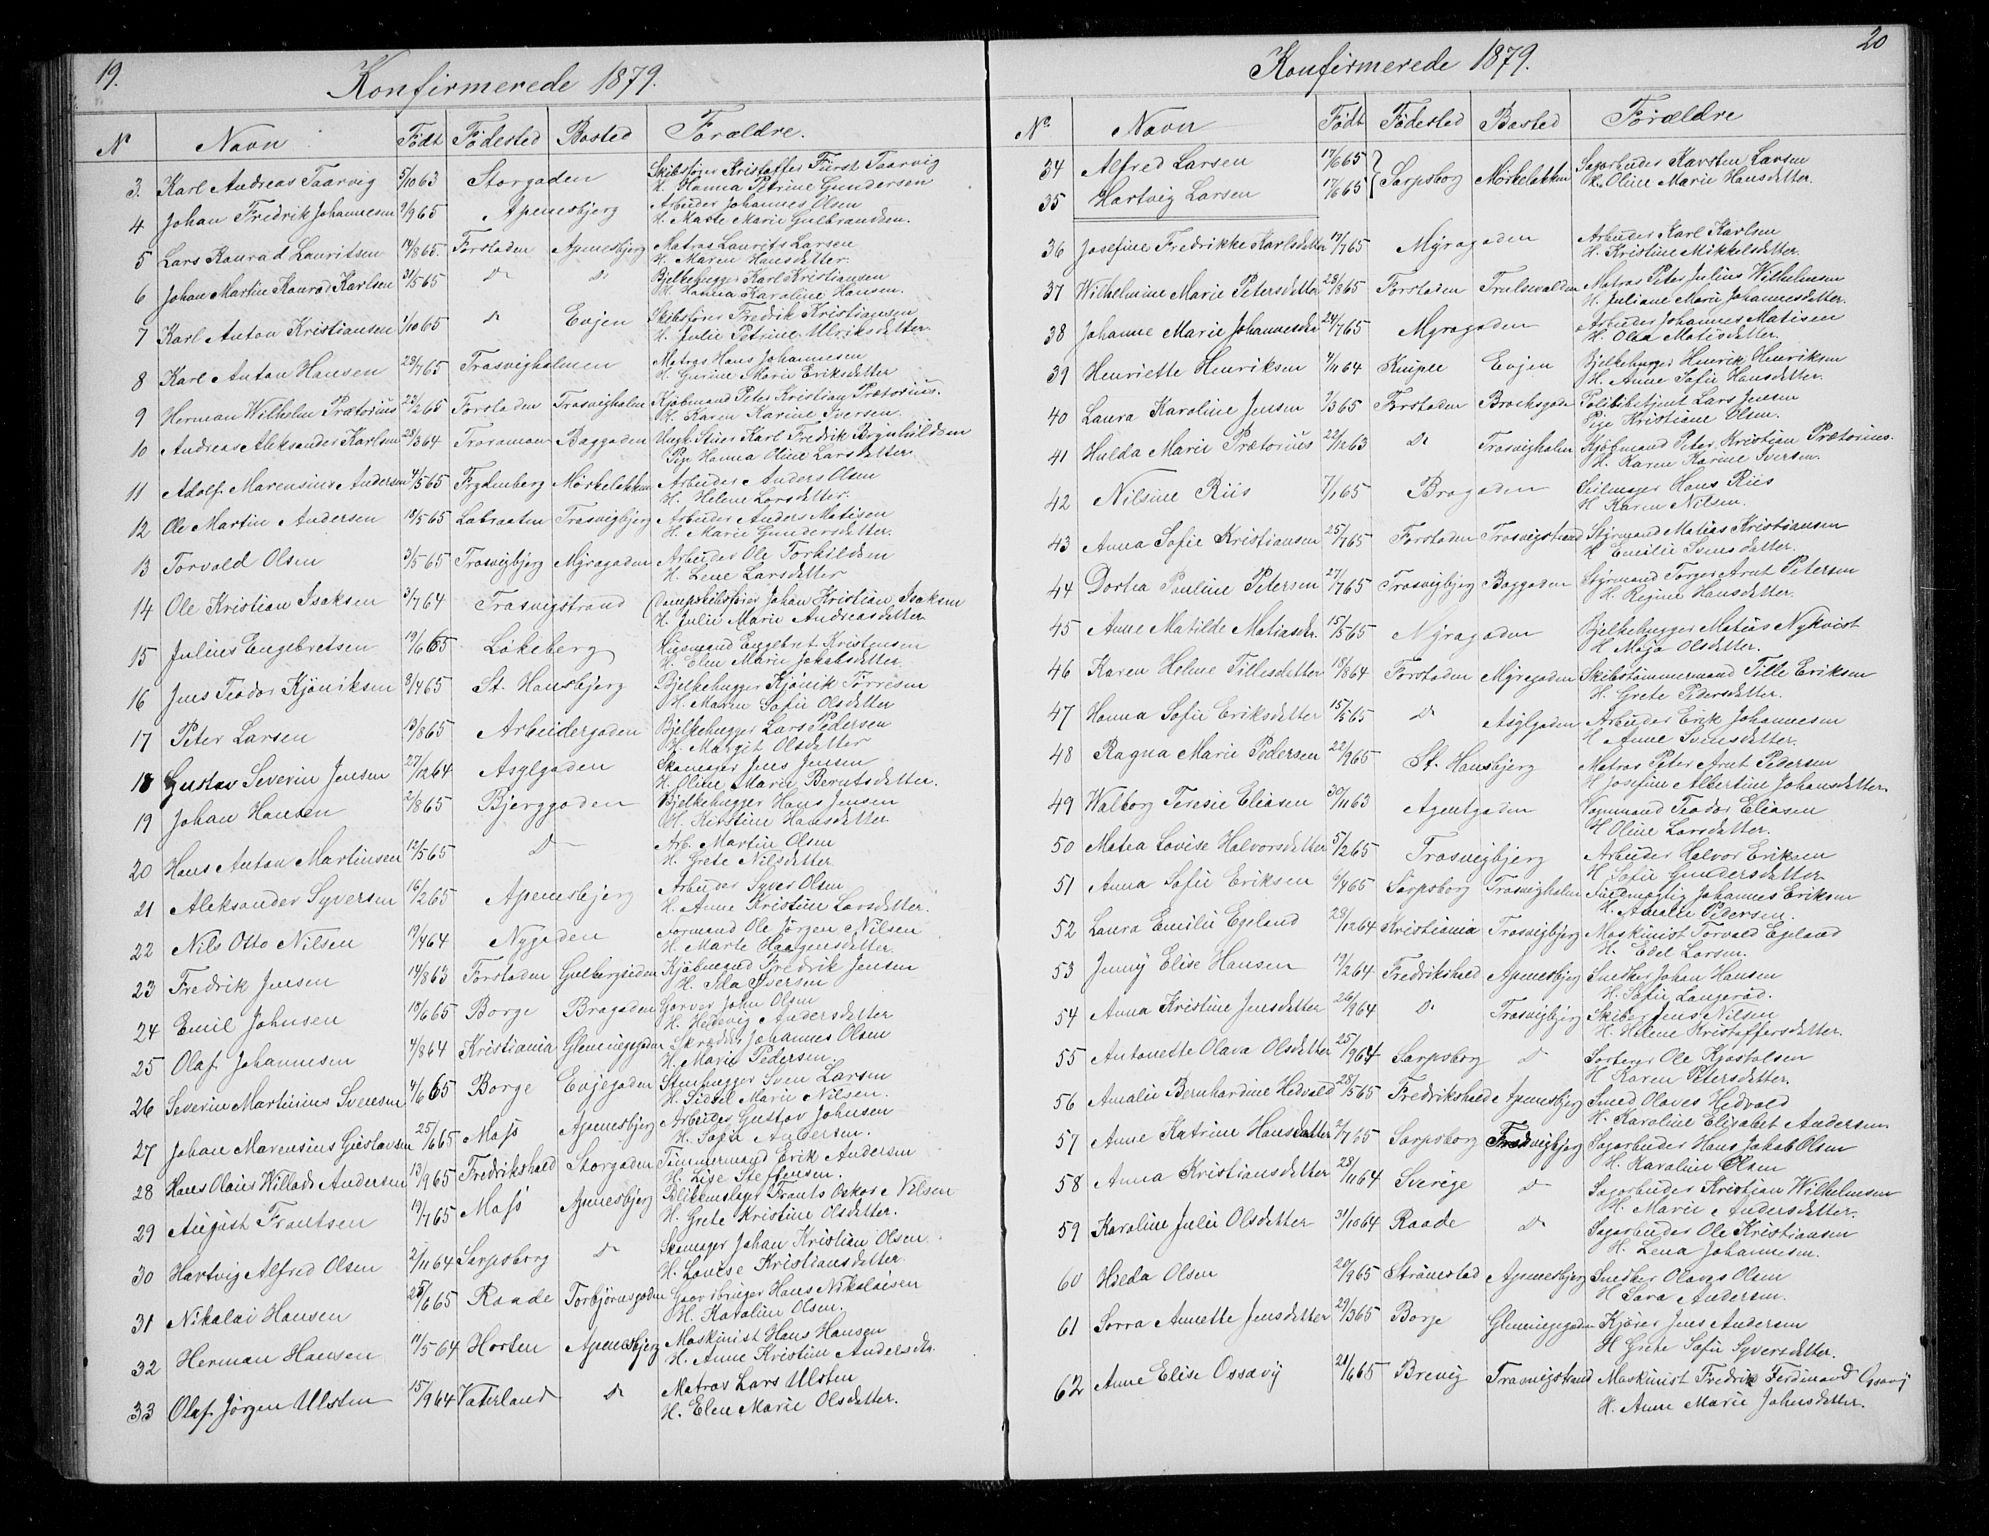 19.
Konfirmerede 1879.
N Navn Født Fødested Bosted Forældre.
3. Karl Andreas Taarvig 5/10 63 Storgaden Skibsfører Kristoffer Fürst Taarvig
H. Hanna Petrine Gundersen
4 Johan Fredrik Johannesen 9/9 65 Apenesbjerg Arbeider Johannes Olsen
H. Marte Marie Gulbrandsen.
5 Lars Konrad Lauritsen 14/8 65. Forstaden Apenesbjerg Matros Laurits Larsen
H. Maren Hansdatter.
6 Johan Martin Konrad Karlsen 31/5 65 do do Bjelkehugger Karl Kristiansen
H. Hanna Karoline Hansen.
7 Karl Anton Kristiansen 1/10 65 do Evjen Skibsfører Fredrik Kristiansen
H. Julie Petrine Ulriksdatter.
8 Karl Anton Hansen 23/7 65 Trosvigholmen Matros Hans Johannesen
H. Gurine Marie Eriksdatter
9 Herman Wilhelm Prætorius 22/2 65 Forstaden Trosvigholm Kjøbmand Peter Kristian Prætorius.
H. Karen Karine Iversen.
10 Andreas Aleksander Karlsen 28/3 64 Traraman Baggaden Ungk. Stuer Karl Fredrik Brynhildsen
Pige Hanna Oline Larsdatter
11 Adolf Marensius Andersen 4/5 65 Frydenberg Mørkeløkken Arbeider Anders Olsen
H. Helene Larsdatter.
12 Ole Martin Andersen 18/5 65 Labraaten Trosvigbjerg Arbeider Anders Matisen
H. Marie Gundersdatter.
13 Torvald Olsen 3/5 65 Trosvigbjerg Myragaden Arbeider Ole Torkildsen
H. Lene Larsdatter
14 Ole Kristian Isaksen 3/7 64 Trosvigstrand Dampskibsfører Johan Kristian Isaksen
H. Julie Marie Andreasdatter
15 Julius Engebretsen 19/6 65 Løkeberg Huusmand Engebret Kristensen
H. Elen Marie Jakobsdatter.
16 Jens Teodor Kjøniksen 8/4 65 St. Hansbjerg Bjelkehugger Kjønik Torresen
H. Maren Sofie Olsdatter
17 Peter Larsen 13/8 65 Arbeidergaden Bjelkehugger Lars Pedersen
H. Margit Olsdatter
18 Gustav Severin Jensen 27/12 64 Asylgaden Skomager Jens Jensen
H. Oline Marie Berntsdatter.
19 Johan Hansen 2/8 65 Bjerggaden Bjelkehugger Hans Jensen
H. Kirstine Hansdatter
20 Hans Anton Martinsen 12/5 65 do Arb. Martin Olsen
H. Grete Nilsdatter
21 Aleksander Syversen 16/2 65 Apenesbjerg Arbeider Syver Olsen
H. Anne Kristine Larsdatter.
22 Nils Otto Nilsen 19/4 64 Nygaden Formand Ole Jørgen Nilsen
H. Marte Haagensdatter.
23 Fredrik Jensen 14/8 63 Forstaden Gulbergsiden Kjøbmand Fredrik Jensen
H. Ida Iversen
24 Emil Johnsen 18/6 65 Borge Brogaden Garver John Olsen
H. Hedevig Andersdatter
25 Olaf Johannesen 4/8 64 Kristiania Glemmegaden Skrædder Johannes Olsen
H. Marie Pedersen.
26 Severin Martinius Svensen 4/6 65 Borge Evjegaden Stenhugger Sven Larsen
H. Sidsel Marie Nilsen.
27 Johan Marensius Gustavsen 25/6 65 Moss Apenesbjerg Arbeider Gustav Johnsen
H. Sofie Andersen.
28 Hans Olaus Willads Andersen 13/9 65 Fredrikshald Storgaden Tømmermand Erik Andersen
H. Lise Steffensen.
29 August Frantsen 19/7 65 Moss Apenesbjerg Blikkenslager Frants Oskar Nilsen
H. Grete Kristine Olsdatter.
30 Hartvig Alfred Olsen 2/11 64 Sarpsborg do Skomager Johan Kristian Olsen
H. Lovise Kristiansdatter
31 Nikolai Hansen 25/6 65 Raade Torbjørnsgaden Gaardbruger Hans Nikolaisen
H. Karoline Olsen.
32 Herman Hansen 11/5 64 Horten Apenesbjerg Maskinist Hans Hansen
H. Anne Kristine Andersdr.
33 Olaf Jørgen Ulsten 15/9 64 Vaterland do Matros Lars Ulsten
H. Elen Marie Olsdatter.
20
Konfirmerede 1879.
No Navn Født Fødested Bosted Forældre
34 Alfred Larsen 17/6 65 Sarpsborg Mørkeløkken Sagarbeider Karsten Larsen
35 Hartvig Larsen 17/6 65 H. Oline Marie Hansdatter.
36 Josefine Fredrikke Karlsdatter 12/7 65 Myragaden Arbeider Karl Karlsen
H. Kristine Mikkelsdatter.
37 Wilhelmine Marie Petersdatter 23/8 65 Forstaden Trulsvalden Matros Peter Julius Wilhelmsen
H. Juliane Marie Johannesdatter.
38 Johanne Marie Johannesdr 24/7 65 Myragaden Arbeider Johannes Matisen
H. Olea Matisdatter.
39 Henriette Henriksen 4/11 64 Knipee Evjen Bjelkehugger Henrik Henriksen
H. Anne Sofie Hansdatter.
40 Laura Karoline Jensen 7/3 65 Forstaden Brocksgaden Politibetjent Lars Jensen
Pige Kristiane Olsen.
41 Hulda Marie Prætorius 22/12 63 do Trosvigholm Kjøbmand Peter Kristian Prætorius.
H. Karen Karine Iversen.
42 Nilsine Riis 7/1 65 Brogaden Seilmager Hans Riis
H Karen Nilsen.
43 Anna Sofie Kristiansen 25/7 65 Forstaden Trosvigstrand Styrmand Matias Kristiansen
H Emilie Svensdatter.
44 Dortea Pauline Petersen 27/7 65 Trosvigbjerg Baggaden Styrmand Torger Arnt Petersen
H. Regine Hansdatter.
45 Anne Matilde Matiasdr. 15/5 65 Myragaden Bjelkehugger Matias Nykvist
H Maja Olsdatter.
46 Karen Helene Tillesdatter 18/8 64 Forstaden Myragaden Skibstømmermand Tille Eriksen
H. Grete Pedersdatter.
47 Hanna Sofie Eriksdatter 15/5 65 do Asylgaden Arbeider Erik Johannesen
H Anne Svensdatter.
48 Ragna Marie Pedersen 22/9 65 St. Hansbjerg Matros Peter Arnt Pedersen
H Josefine Albertine Johansdatter.
49 Walborg Teresie Eliasen 30/11 63 Agentgaden Vognmand Teodor Eliasen
H Oline Larsdatter.
50 Matea Lovise Halvorsdatter 5/2 65 Trosvigbjerg Arbeider Halvor Eriksen
H Sofie Gundersdatter
51 Anna Sofie Eriksen 6/4 65 Sarpsborg Trosvigholm Fuldmægtig Johannes Eriksen
H. Amalie Pedersen.
52 Laura Emilie Egeland 29/12 64 Kristiania Trosvigbjerg Maskinist Torvald Egeland
H. Edel Larsen.
53 Jenny Elise Hansen 19/2 64 Fredrikshald Apenesbjerg Snedker Johan Hansen
H. Sofie Langerød.
54 Anna Kristine Jensdatter 26/9 64 do Trosvigbjerg Skiber Jens Nilsen
H. Helene Kristoffersdatter.
55 Antonette Olava Olsdatter 25/9 64 Sarpsborg do Sorterer Ole Kjøstolsen
H Karen Petersdatter.
56 Amalie Bernhardine Hedvald 28/5 65 Fredrikshald Apenesbjerg Smed Olaves Hedvald
H. Karoline Elisabet Andersen.
57 Anne Katrine Hansdatter 2/7 65 Sarpsborg Trosvigbjerg Sagarbeider Hans Jakob Olsen
H. Karoline Olsen
58 Anna Kristiansdatter 28/11 64 Sverige do Sagarbeider Kristian Wilhelmsen
H. Marie Andersdatter.
59 Karoline Julie Olsdatter 31/10 64 Raade do Sagarbeider Ole Kristiansen
H. Lena Johannesen.
60 Hilda Olsen 20/9 65 Strømstad Apenesbjerg Snedker Olaves Olsen
H Sara Andersen.
61 Sorra Annette Jensdatter 29/3 65 Borje Glemmegaden Kjører Jens Andersen
H Grete Sofie Syversdatter.
62 Anne Elise Ossavy 21/6 65 Brevig Trosvigstrand Maskinist Fredrik Ferdinand Ossavy
H. Anne Marie Johnsdatter.